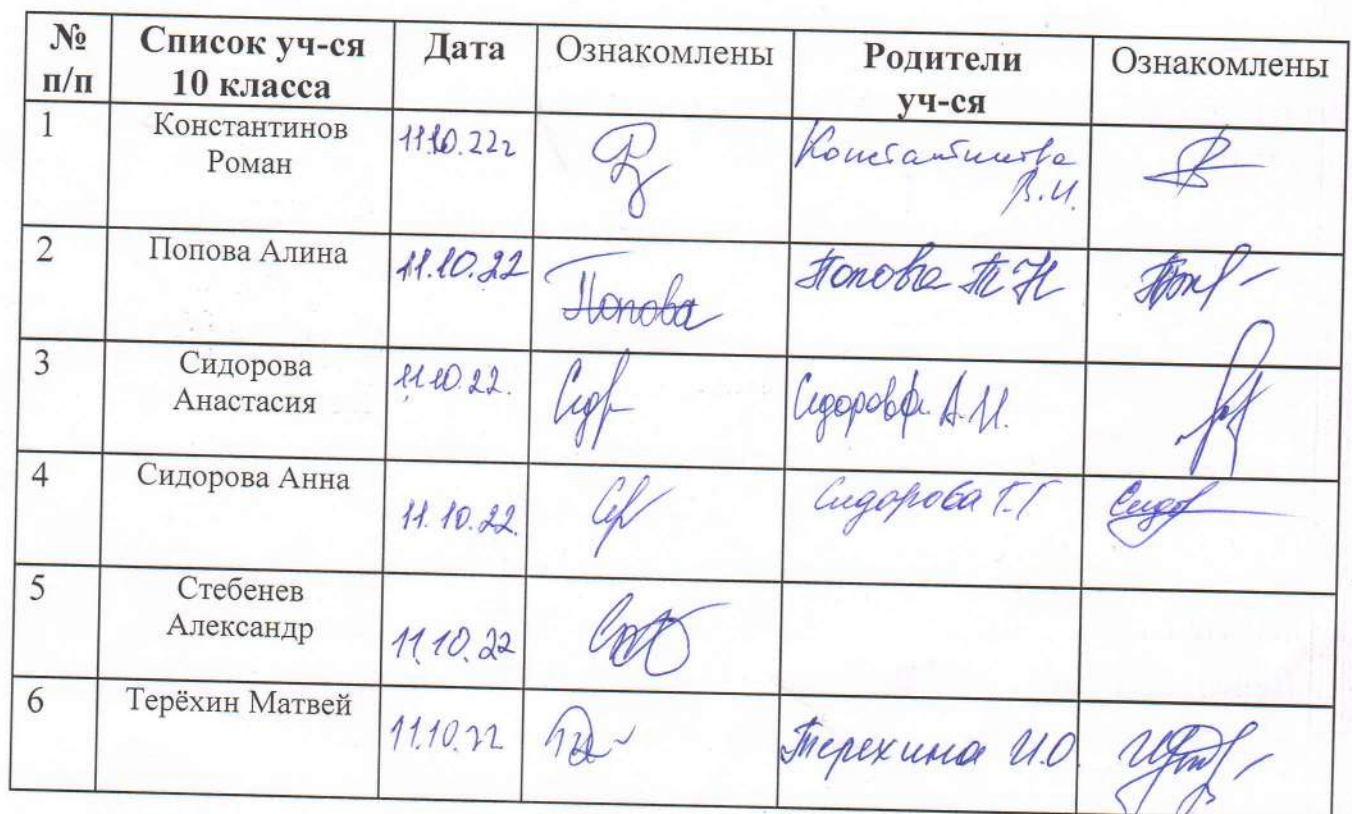 № п/п Список уч-ся 10 класса Дата Ознакомлены Родители уч-ся Ознакомлены
1 Константинов Роман 11.10.22г Константинова В.И.
2 Попова Алина 11.10.22 Попова Попова Т Н
3 Сидорова Анастасия 11.10.22. Сидорова А.И.
4 Сидорова Анна 11.10.22. Сидорова Т.Г Сидор
5 Стебенев Александр 11.10.22
6 Терёхин Матвей 11.10.22 Терехина И.О